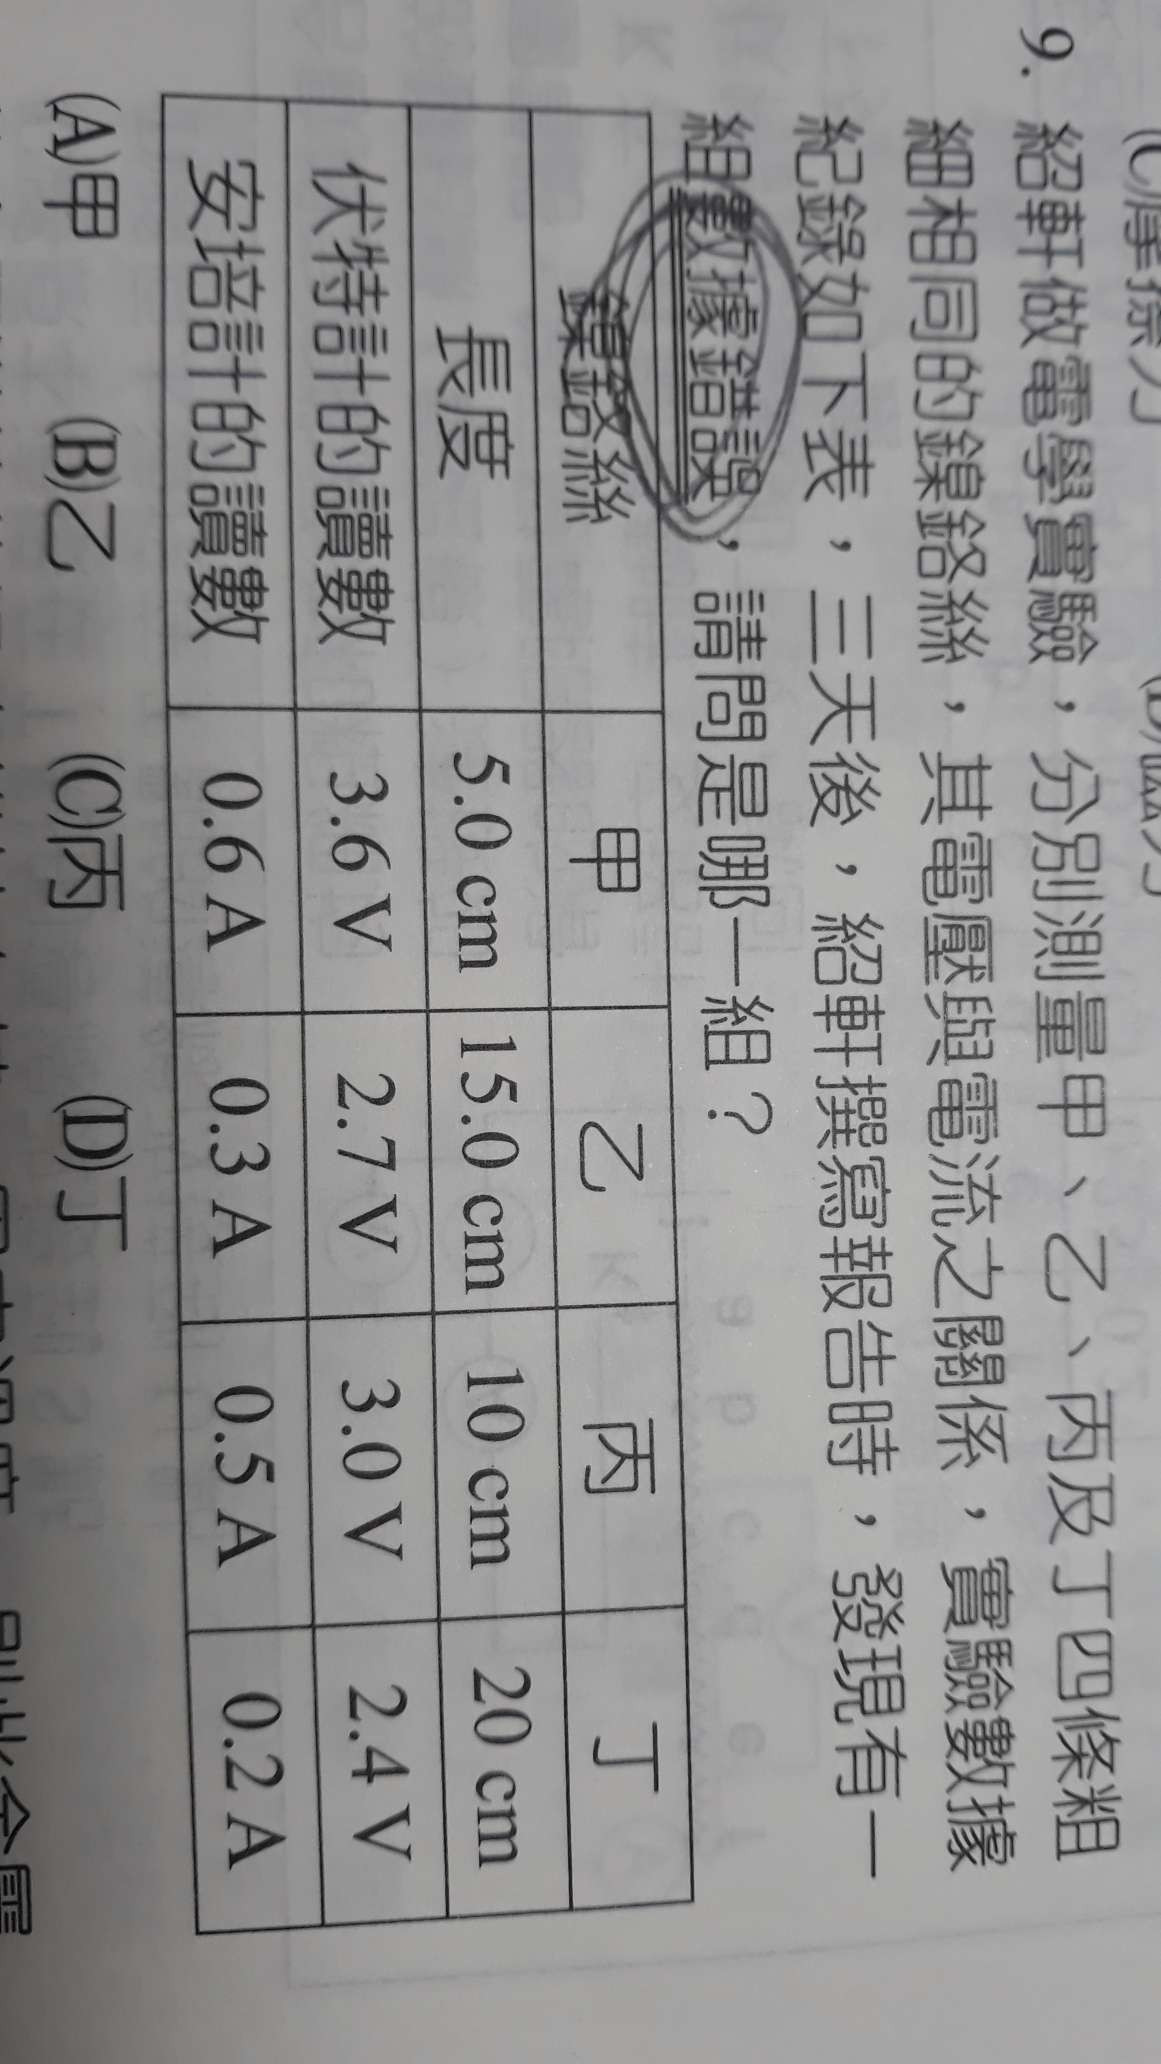 9. 紹軒做電學實驗，分別測量甲、乙、丙及丁四條粗
細相同的鎳鉻絲，其電壓與電流之關係，實驗數據
紀錄如下表，三天後，紹軒撰寫報告時，發現有一
組數據錯誤，請問是哪一組？
鎳鉻絲 甲 乙 丙 丁
長度 5.0 cm 15.0 cm 10 cm 20 cm
伏特計的讀數 3.6 V 2.7 V 3.0 V 2.4 V
安培計的讀數 0.6 A 0.3 A 0.5 A 0.2 A
(A)甲 (B)乙 (C)丙 (D)丁